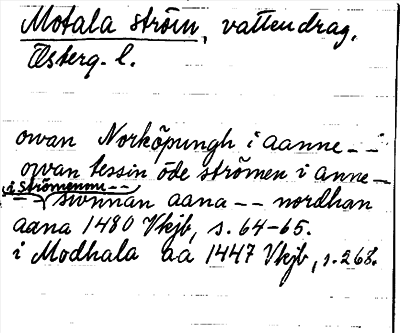 Motala ström, vattendrag,
Österg. l.
owan Norköpungh i aanne - -
owan tessin öde strömen i anne -
i strömennu - -
- - swnnan aana - - nordhan
aana 1480 Vkjb, s. 64-65.
i Modhala aa 1447 Vkjb, s. 268.